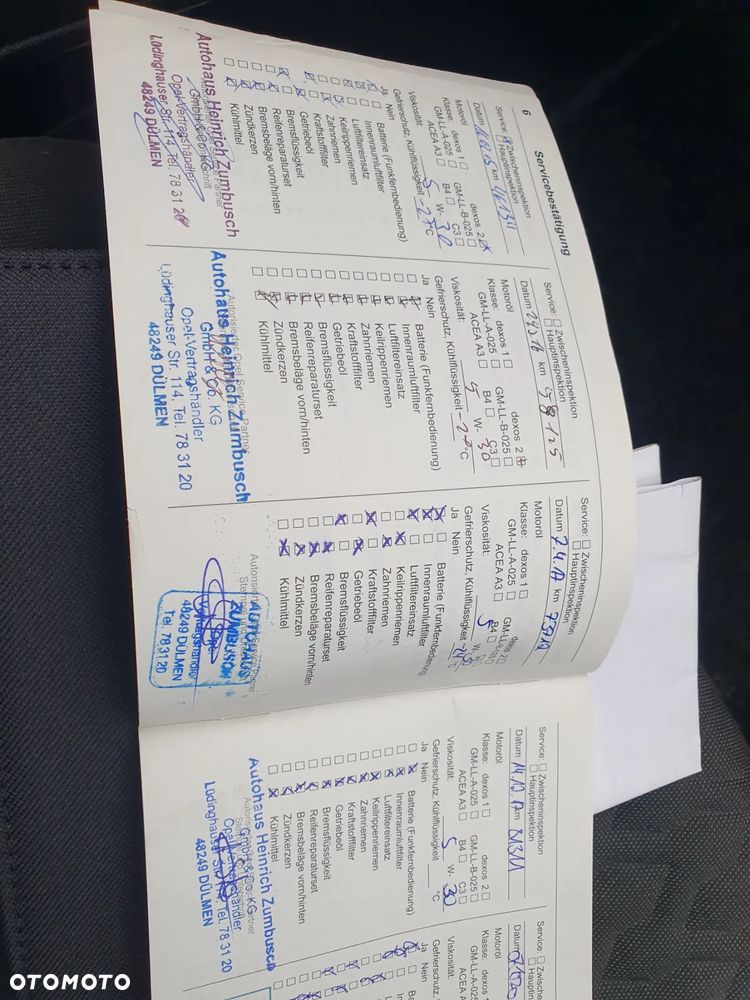 6
Servicebestätigung
Service: Zwischeninspektion
Hauptinspektion
Datum km
Motoröl
Klasse: dexos 1 dexos 2
GM-LL-A-025 GM-LL-B-025
ACEA A3 B4 C3
Viskosität: 5 W- 30
Gefrierschutz, Kühlflüssigkeit -27 °C
Ja Nein
Batterie (Funkfernbedienung)
Innenraumluftfilter
Luftfiltereinsatz
Keilrippenriemen
Zahnriemen
Kraftstofffilter
Getriebeöl
Bremsflüssigkeit
Reifenreparaturset
Bremsbeläge vorn/hinten
Zündkerzen
Kühlmittel
Autohaus Heinrich Zumbusch
GmbH & Co. KG
Opel-Vertragshändler
Lüdinghauser Str. 114, Tel. 78 31 20
48249 DÜLMEN
Service: Zwischeninspektion
Hauptinspektion
Datum 24.5.16 km 58125
Motoröl
Klasse: dexos 1 dexos 2
GM-LL-A-025 GM-LL-B-025
ACEA A3 B4 C3
Viskosität: 5 W- 30
Gefrierschutz, Kühlflüssigkeit -27 °C
Ja Nein
Batterie (Funkfernbedienung)
Innenraumluftfilter
Luftfiltereinsatz
Keilrippenriemen
Zahnriemen
Kraftstofffilter
Getriebeöl
Bremsflüssigkeit
Reifenreparaturset
Bremsbeläge vorn/hinten
Zündkerzen
Kühlmittel
Autorisierter Opel Service Partner
Autohaus Heinrich Zumbusch
GmbH & Co. KG
Opel-Vertragshändler
Lüdinghauser Str. 114, Tel. 78 31 20
48249 DÜLMEN
Service: Zwischeninspektion
Hauptinspektion
Datum 7.4.17 km
Motoröl
Klasse: dexos 1 dexos 2
GM-LL-A-025
ACEA A3 B4
Viskosität: 5 W-
Gefrierschutz, Kühlflüssigkeit °C
Ja Nein
Batterie (Funkfernbedienung)
Innenraumluftfilter
Luftfiltereinsatz
Keilrippenriemen
Zahnriemen
Kraftstofffilter
Getriebeöl
Bremsflüssigkeit
Reifenreparaturset
Bremsbeläge vorn/hinten
Zündkerzen
Kühlmittel
AUTOHAUS
ZUMBUSCH
Opel-
Vertragshändler
48249 DÜLMEN
Tel. 78 31 20
Service: Zwischeninspektion
Hauptinspektion
Datum 14.12.17 km
Motoröl
Klasse: dexos 1 dexos 2
GM-LL-A-025 GM-LL-B-025
ACEA A3 B4 C3
Viskosität: 5 W- 30
Gefrierschutz, Kühlflüssigkeit °C
Ja Nein
Batterie (Funkfernbedienung)
Innenraumluftfilter
Luftfiltereinsatz
Keilrippenriemen
Zahnriemen
Kraftstofffilter
Getriebeöl
Bremsflüssigkeit
Reifenreparaturset
Bremsbeläge vorn/hinten
Zündkerzen
Kühlmittel
Autohaus Heinrich Zumbusch
GmbH & Co. KG
Opel-Vertragshändler
Lüdinghauser Tel. 78 31 20
48249 DÜLMEN
Service:
Datum
Motoröl
Klasse: dexos 1
GM-LL-A-025
ACEA
Viskosität:
Gefrierschutz,
Ja Nein
OTOMOTO